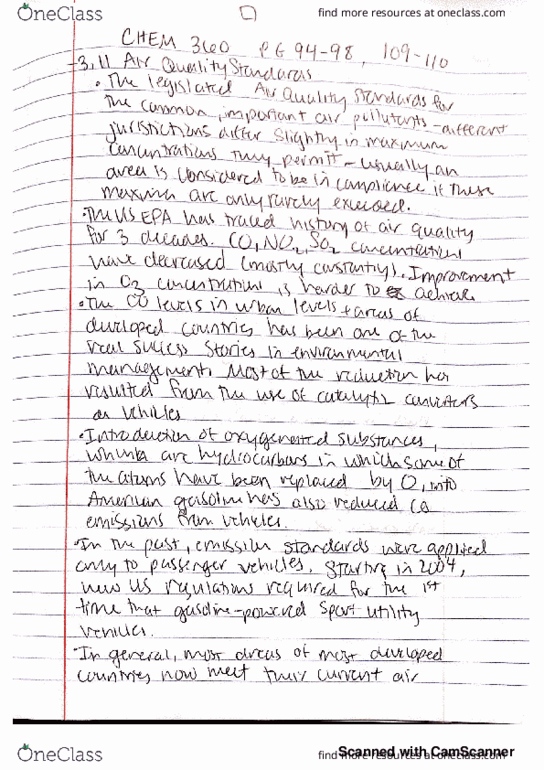 OneClass
find more resources at oneclass.com
CHEM 360 PG 94-98, 109-110
-3.11 Air Quality Standards
• The legislated Air Quality Standards for
the common, important air pollutants - different
juristictions differ slightly in maximum
concentrations they permit - usually an
area is considered to be in compliance if these
maxima are only rarely exceeded.
• The US EPA has traced history of air quality
for 3 decades. CO, NO2, SO2 concentrations
have decreased (mostly constantly). Improvement
in O3 concentrations is harder to achieve
• The CO levels in urban levels + areas of
developed countries has been one of the
real success stories in environmental
management. Most of the reduction has
resulted from the use of catalytic converters
on vehicles
• Introduction of oxygenated substances,
which are hydrocarbons in which some of
the atoms have been replaced by O, into
American gasoline has also reduced CO
emissions from vehicles.
• In the past, emission standards were applied
only to passenger vehicles. Starting in 2004,
new US regulations required for the 1st
time that gasoline-powered sport utility
vehicles.
• In general, most areas of most developed
countries now meet their current air
OneClass
find more resources at oneclass.com
Scanned with CamScanner